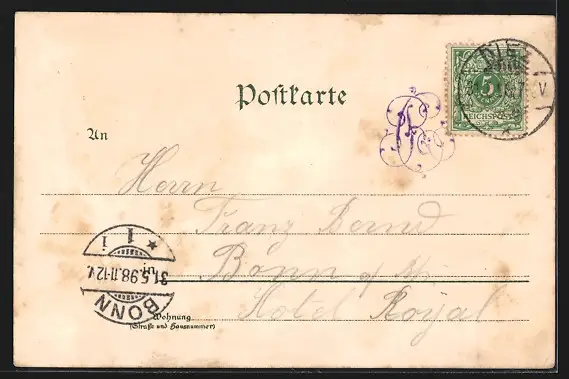 Postkarte
5
REICHSPOST
An
Herrn
Franz Bernd
Bonn a/Rh
Hotel Royal
BONN
31.5.98.11-12V.
* 1 i
Wohnung
(Straße und Hausnummer)